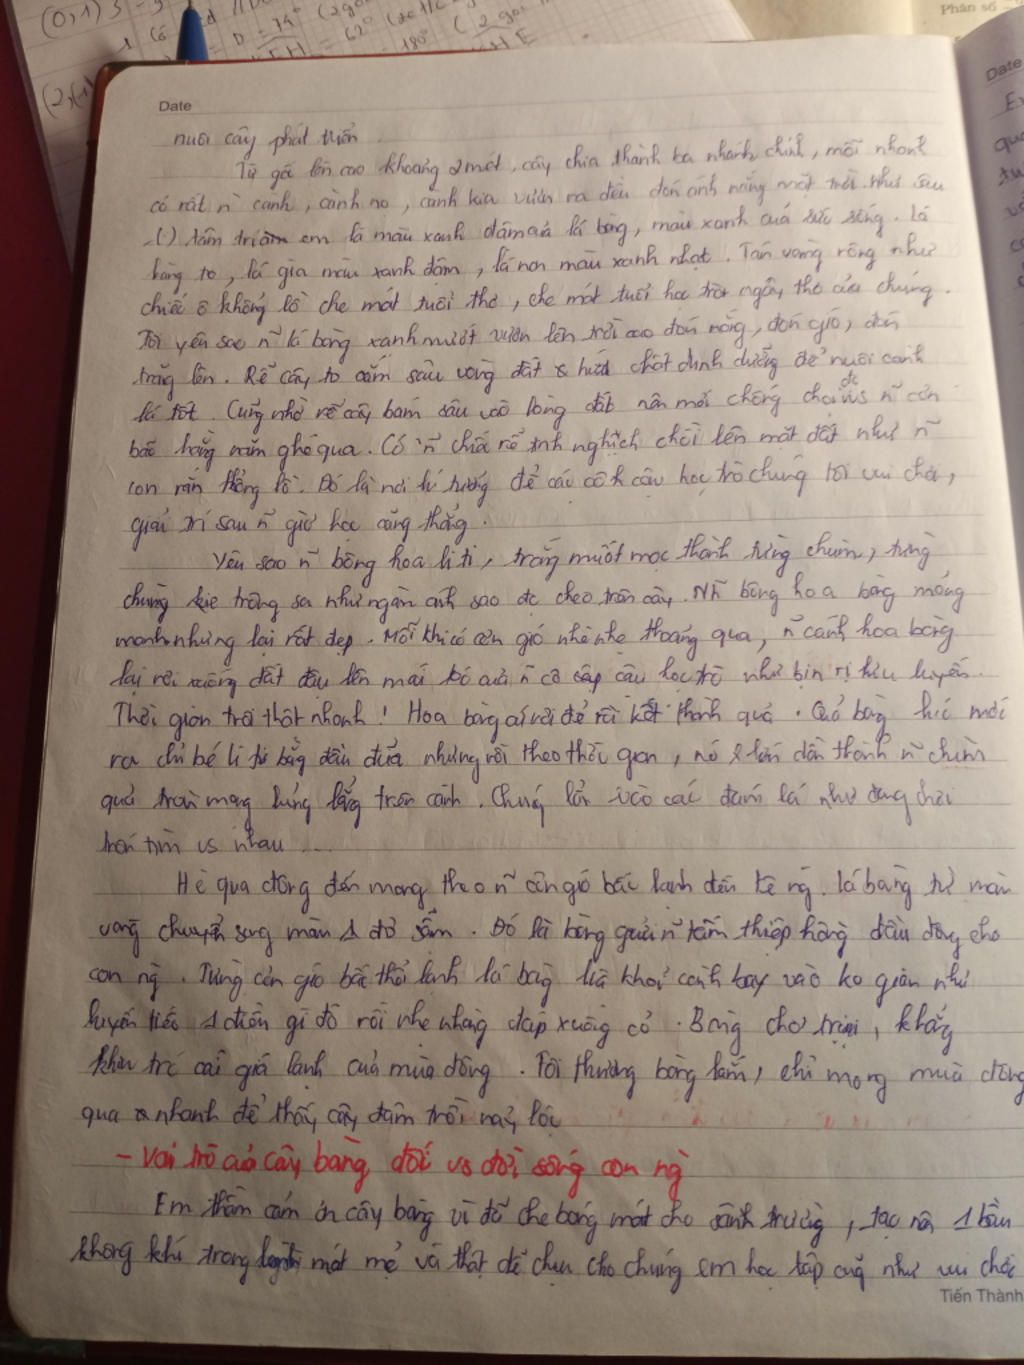 Date
nuôi cây phát triển
Từ gốc lên cao khoảng 2 mét, cây chia thành ba nhánh chính, mỗi nhánh
có rất ñ cành, cành nọ, cành kia vươn ra đều đón ánh nắng mặt trời. như
(.) tâm trí em là màu xanh đậm của lá bàng, màu xanh của sức sống. Lá
bàng to, lá già màu xanh đậm, lá non màu xanh nhạt. Tán vòng rộng như
chiếc ô khổng lồ che mát tuổi thơ, che mát tuổi học trò ngây thơ của chúng.
Tôi yêu sao ñ lá bàng xanh mướt vươn lên trời cao đón nắng, đón gió, đón
trăng lên. Rễ cây to cắm sâu vòng đất & hút chất dinh dưỡng để nuôi cành
lá tốt. Cũng nhờ rễ cây bám sâu vào lòng đất nên mới chống chọi đc vs ñ cơn
bão hằng năm ghé qua. Có ñ chiếc rễ tinh nghịch chồi lên mặt đất như ñ
con rắn khổng lồ. Đó là nơi lí tưởng để các cô cậu học trò chúng tôi vui chơi,
giải trí sau ñ giờ học căng thẳng.
Yêu sao ñ bông hoa li ti, trắng muốt mọc thành từng chùm, từng
chùng trông sa như ngàn ánh sao đc cheo trên cây. Nh bông hoa bàng mỏng
manh nhưng lại rất đẹp. Mỗi khi có cơn gió nhè nhẹ thoáng qua, ñ cánh hoa bàng
lại rơi xuống đất đậu lên mái tóc của ñ cô cậu học trò như bịn rịn lưu luyến.
Thời gian trôi thật nhanh! Hoa bàng rơi để rồi kết thành quả. Quả bàng lúc mới
ra chỉ bé li ti bằng đầu đũa nhưng rồi theo thời gian, nó lớn dần thành ñ chùm
quả tròn mọng lủng lẳng trên cành. Chúng lẩn vào các đám lá như đang chơi
trốn tìm vs nhau ....
Hè qua đông đến mang theo ñ cơn gió bấc lạnh đến tê ng. lá bàng từ màu
vàng chuyển sang màu đỏ sẫm. Đó là bàng gửi ñ tấm thiệp hồng đầu đông cho
con ng. Từng cơn gió bấc thổi lạnh lá bàng lìa khỏi cành bay vào ko gian như
luyến tiếc 1 điều gì đó rồi nhẹ nhàng đáp xuống cỏ. Bàng trơ trụi, khẳng
khiu trc cái giá lạnh của mùa đông. Tôi thương bàng lắm, chỉ mong mùa đông
qua nhanh để thấy cây đâm trồi nảy lộc
- Vai trò của cây bàng đối vs đời sống con ng
Em thầm cảm ơn cây bàng vì đã che bóng mát cho sân trường, tạo nên 1 bầu
không khí trong lành mát mẻ và thật dễ chịu cho chúng em học tập cũng như vui chơi
Tiến Thành